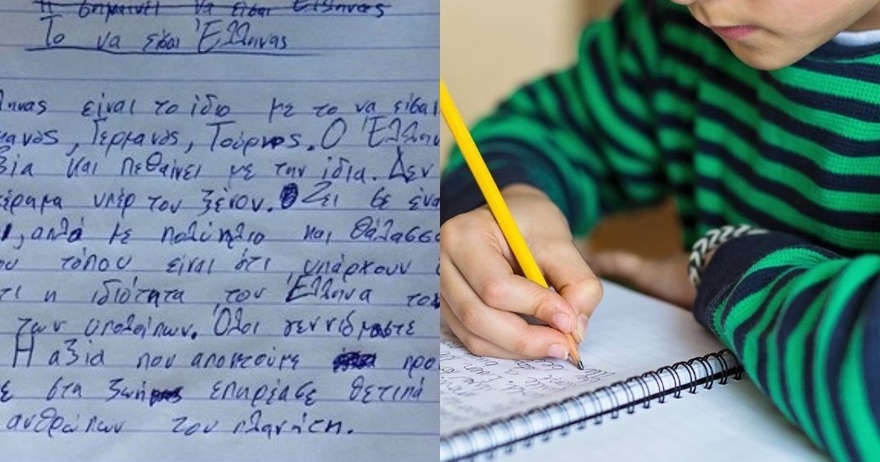 Τι σημαίνει να είσαι Έλληνας
Το να είσαι Έλληνας
ληνας είναι το ίδιο με το να είσαι
μανός, Γερμανός, Τούρκος. Ο Έλλην
ξία και πεθαίνει με την ίδια. Δεν
έραμα υπέρ του ξένου. Ζει σε ένα
, αλλά με πολύ ήλιο και θάλασσα
ου τόπου είναι ότι υπάρχουν
τι η ιδιότητα του Έλληνα το
των υπολοίπων. Όλοι γεννιόμαστε
Η αξία που αποκτούμε προ
ε στα ζωή επηρέασε θετικά
ανθρώπων του πλανήτη.